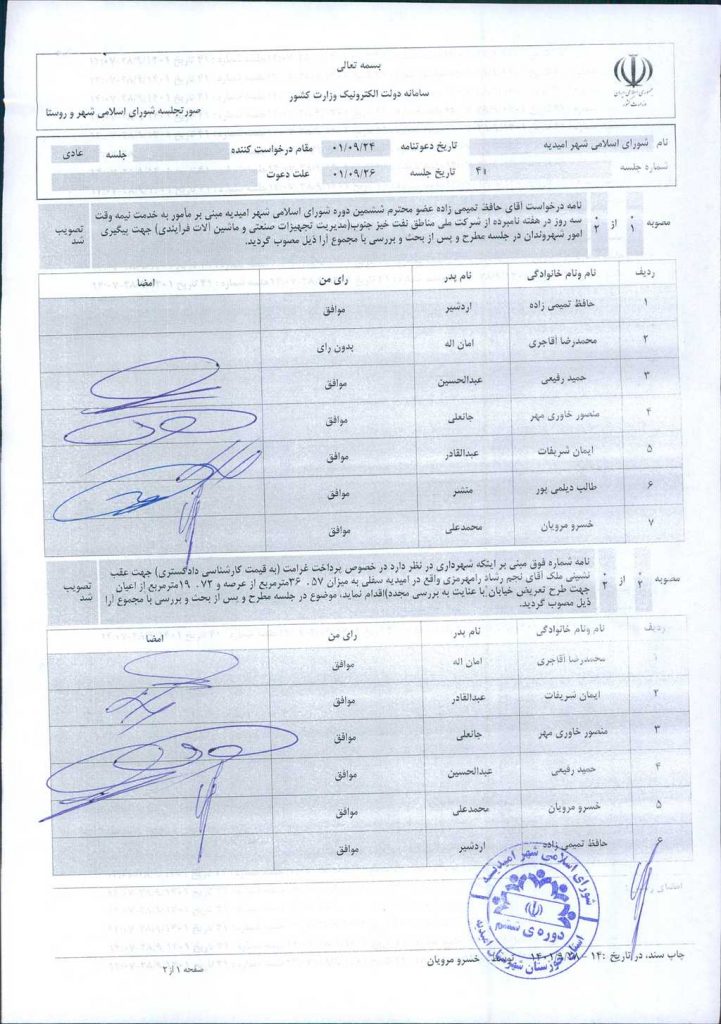 بسمه تعالی
سامانه دولت الکترونیک وزارت کشور
صورتجلسه شورای اسلامی شهر و روستا
جمهوری اسلامی ایران
وزارت کشور
نام شورای اسلامی شهر امیدیه تاریخ دعوتنامه ۰۱/۰۹/۲۴ مقام درخواست کننده جلسه عادی
شماره جلسه ۴۱ تاریخ جلسه ۰۱/۰۹/۲۶ علت دعوت
مصوبه ۱ از ۲
نامه درخواست آقای حافظ تمیمی زاده عضو محترم ششمین دوره شورای اسلامی شهر امیدیه مبنی بر مأمور به خدمت نیمه وقت
سه روز در هفته نامبرده از شرکت ملی مناطق نفت خیز جنوب(مدیریت تجهیزات صنعتی و ماشین آلات فرآیندی) جهت پیگیری
امور شهروندان در جلسه مطرح و پس از بحث و بررسی با مجموع آرا ذیل مصوب گردید.
تصویب شد
ردیف نام ونام خانوادگی نام پدر رای من امضا
۱ حافظ تمیمی زاده اردشیر موافق
۲ محمدرضا آقاجری امان اله بدون رای
۳ حمید رفیعی عبدالحسین موافق
۴ منصور خاوری مهر جانعلی موافق
۵ ایمان شریفات عبدالقادر موافق
۶ طالب دیلمی پور منتشر موافق
۷ خسرو مرویان محمدعلی موافق
مصوبه ۲ از ۲
نامه شماره فوق مبنی بر اینکه شهرداری در نظر دارد در خصوص پرداخت غرامت (به قیمت کارشناسی دادگستری) جهت عقب
نشینی ملک آقای نجم رشاد رامهرمزی واقع در امیدیه سفلی به میزان ۵۷ . ۳۶مترمربع از عرصه و ۷۲ . ۱۹مترمربع از اعیان
جهت طرح تعریض خیابان(با عنایت به بررسی مجدد)اقدام نماید، موضوع در جلسه مطرح و پس از بحث و بررسی با مجموع آرا
ذیل مصوب گردید.
تصویب شد
ردیف نام ونام خانوادگی نام پدر رای من امضا
۱ محمدرضا آقاجری امان اله موافق
۲ ایمان شریفات عبدالقادر موافق
۳ منصور خاوری مهر جانعلی موافق
۴ حمید رفیعی عبدالحسین موافق
۵ خسرو مرویان محمدعلی موافق
۶ حافظ تمیمی زاده اردشیر موافق
امضای
شورای اسلامی شهر امیدیه
دوره ی ششم
استان خوزستان شهرستان امیدیه
چاپ سند، در تاریخ توسط خسرو مرویان
صفحه ۱ از ۲